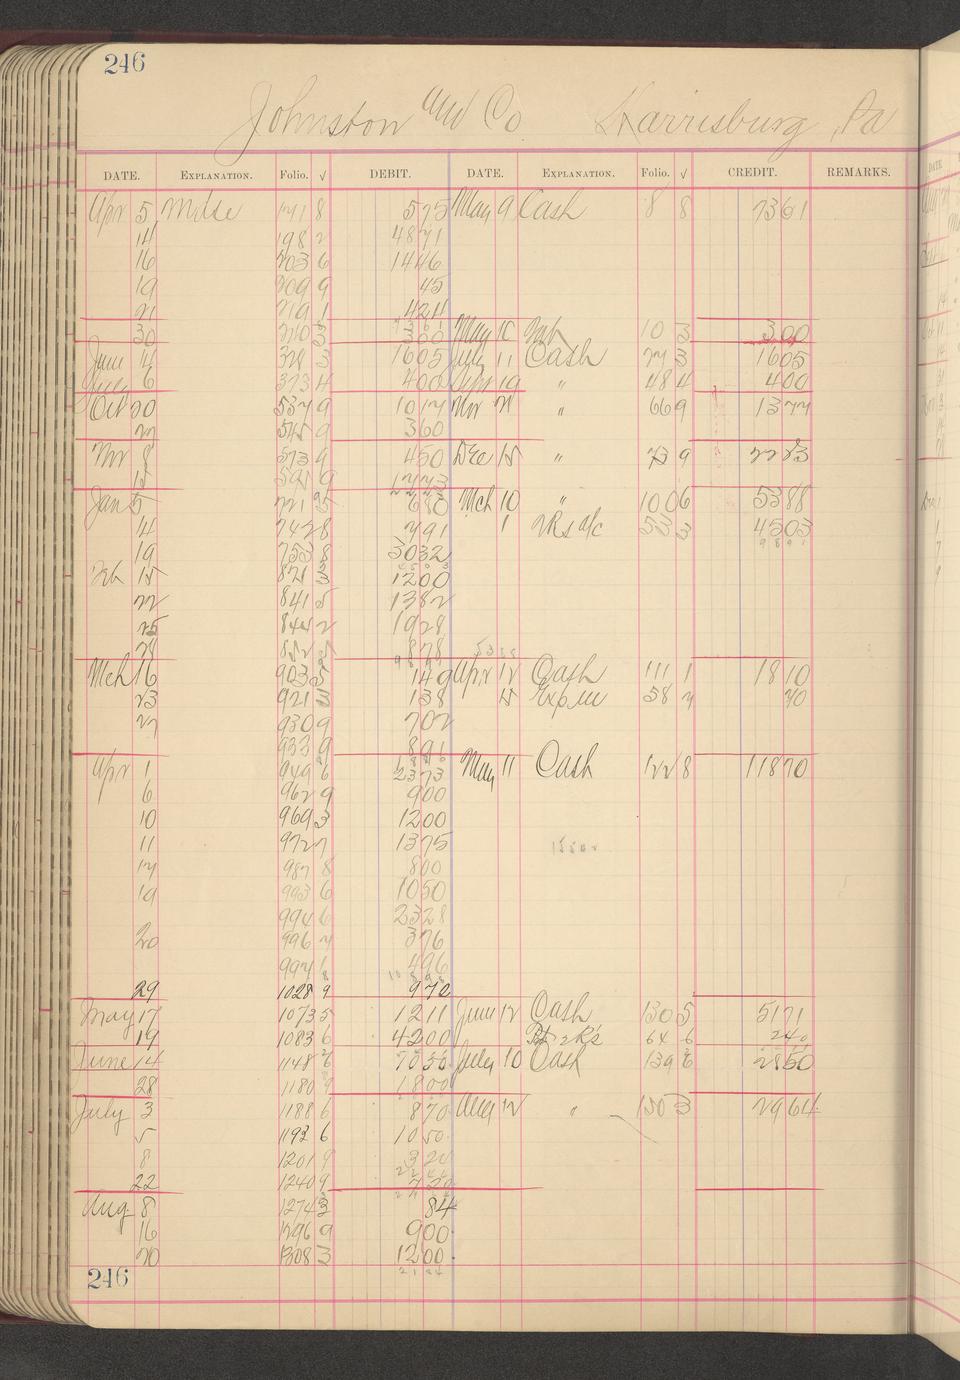 246
Johnston and Co Harrisburg, Pa
DATE. EXPLANATION. Folio. √ DEBIT. DATE. EXPLANATION. Folio. √ CREDIT. REMARKS.
Apr 5 Mdse 171 8 575 May 9 Cash 8 8 7361
14 198 2 4871
16 203 6 1446
19 209 9 45
21 219 1 424
30 210 3 300 May 10 10 3 300
June 14 328 3 1605 July 11 Cash 27 3 1605
July 6 373 4 400 19 " 48 4 400
Oct 20 537 9 1017 Nov 21 " 66 9 1377
22 545 9 360
Nov 8 573 9 450 Dec 15 " 73 9 2223
15 591 9 1773
Jan 5 721 5 680 Mch 10 " 100 6 5388
14 742 8 791 1 a/c 53 3 4503
19 753 8 3032
Feb 15 821 3 1200
22 841 5 1382
25 844 2 1928
28 852 878
Mch 16 903 5 149 Apr 12 Cash 111 1 1810
23 921 3 138 15 58 7 70
27 930 9 702
933 9 891
Apr 1 949 6 2373 May 11 Cash 122 8 11870
6 962 9 900
10 969 3 1200
11 972 7 1375
17 987 8 800
19 993 6 1050
994 6 2328
20 996 7 376
997 1 496
29 1028 9 972
May 17 1073 5 1211 June 12 Cash 130 5 5171
19 1083 6 4200 64 6 240
June 14 1148 8 1050 July 10 Cash 139 6 2850
28 1180 9 1800
July 3 1188 6 870 Aug 12 " 150 3 2964
5 1192 6 1050
8 1201 9 320
22 1240 9 720
Aug 8 1274 3 84
16 1296 9 900
20 1308 3 1200
246